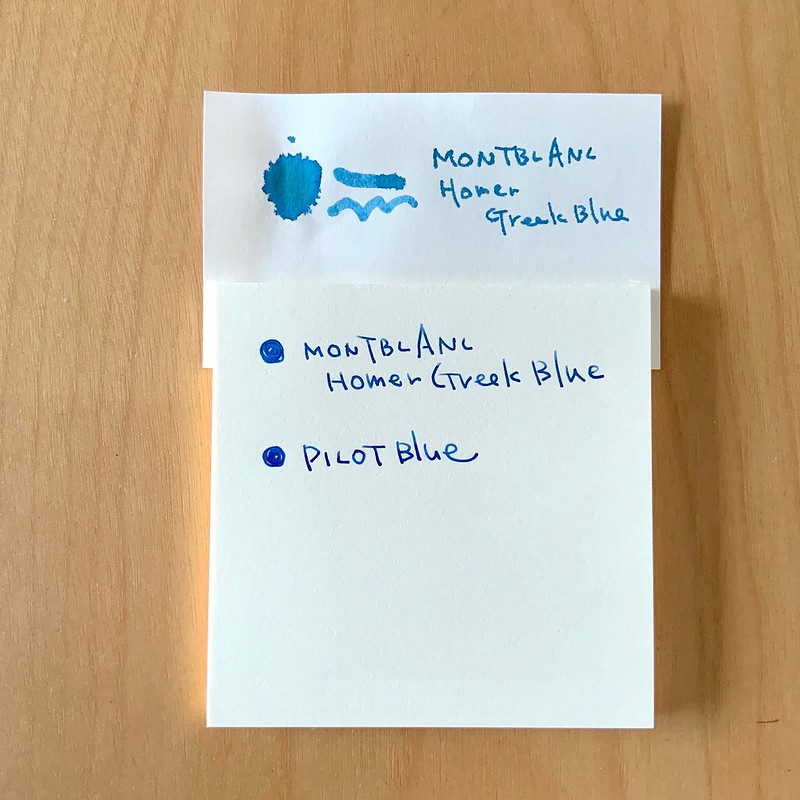 MONTBLANC
Homer
Greek Blue
MONTBLANC
Homer Greek Blue
PILOT Blue